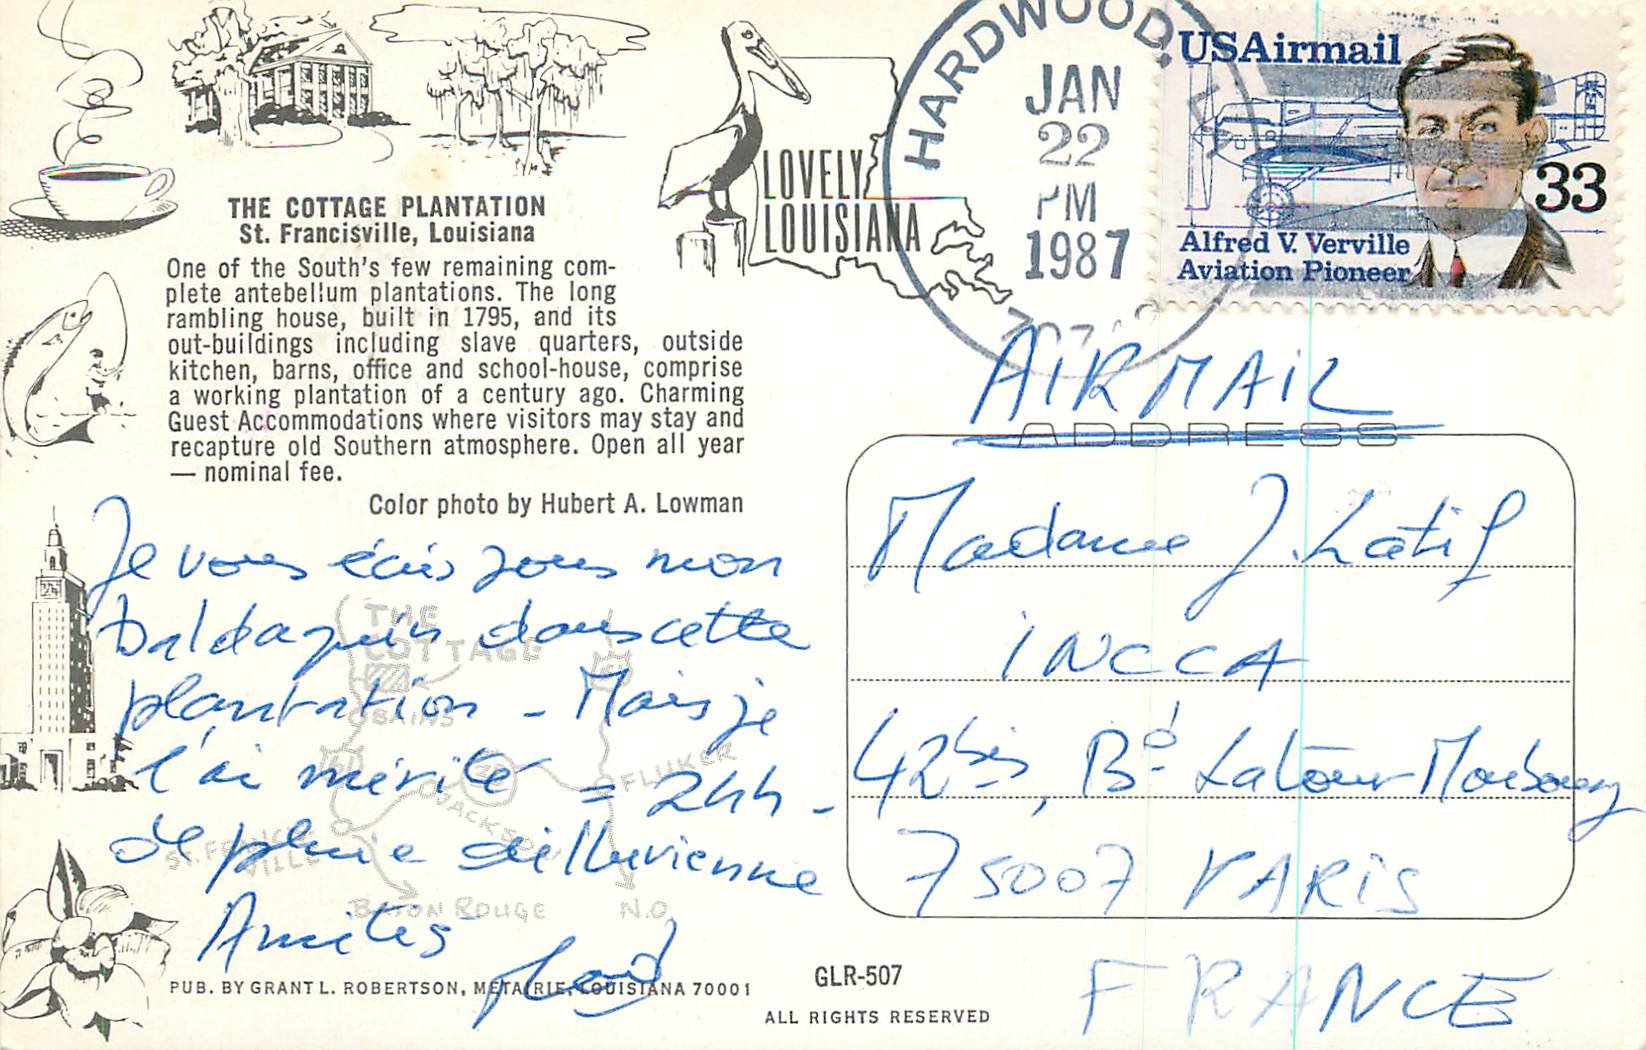 THE COTTAGE PLANTATION
St. Francisville, Louisiana
One of the South's few remaining com-
plete antebellum plantations. The long
rambling house, built in 1795, and its
out-buildings including slave quarters, outside
kitchen, barns, office and school-house, comprise
a working plantation of a century ago. Charming
Guest Accommodations where visitors may stay and
recapture old Southern atmosphere. Open all year
— nominal fee.
Color photo by Hubert A. Lowman
LOVELY
LOUISIANA
HARDWOOD,
JAN
22
PM
1987
USAirmail
33
Alfred V. Verville
Aviation Pioneer
AIRMAIL
ADDRESS
Je vous écris sous mon
baldaquin dans cette
plantation - Mais je
l'ai mérité = 24h -
de pluie diluvienne
Amitiés
THE
COTTAGE
BAINS
61
FLUKER
JACKSON
ST. FRANCIS-
VILLE
BATON ROUGE
N.O.
Madame J. Latif
INCCA
42bis, Bd Latour Maubourg
75007 PARIS
FRANCE
PUB. BY GRANT L. ROBERTSON, METAIRIE, LOUISIANA 70001
GLR-507
ALL RIGHTS RESERVED